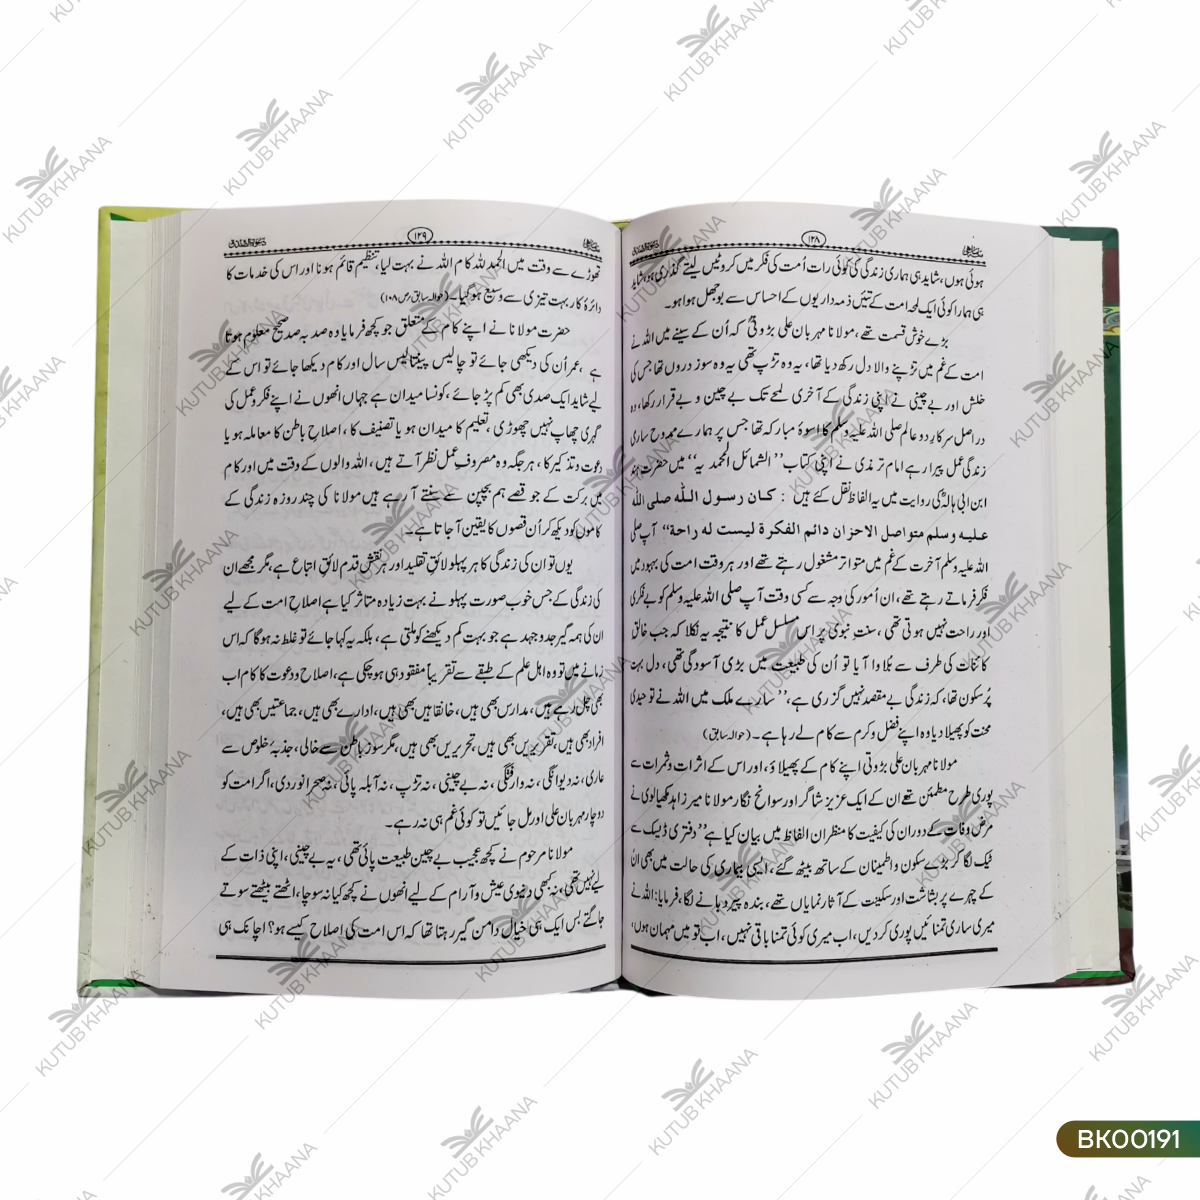 ۱۲۸
ہوئی ہوں، شاید ہی ہماری زندگی کی کوئی رات اُمت کی فکر میں کروٹیں لیتے گذاری ہو، شاید
ہی ہمارا کوئی ایک لمحہ امت کے تئیں ذمہ داریوں کے احساس سے بوجھل ہوا ہو۔
بڑے خوش قسمت تھے، مولانا مہربان علی بڑوتیؒ کہ اُن کے سینے میں اللہ نے
امت کے غم میں تڑپنے والا دل رکھ دیا تھا، یہ وہ تڑپ تھی یہ وہ سوز دروں تھا جس کی
خلش اور بے چینی نے اپنی زندگی کے آخری لمحے تک بے چین و بے قرار رکھا، وہ
در اصل سرکارِ دو عالم صلی اللہ علیہ وسلم کا اسوۂ مبارکہ تھا جس پر ہمارے ممدوح ساری
زندگی عمل پیرا رہے امام ترمذی نے اپنی کتاب ’’الشمائل المحمدیہ‘‘ میں حضرت ہند
ابن ابی ہالہؓ کی روایت میں یہ الفاظ نقل کئے ہیں : کان رسول اللّٰہ صلی اللہ
علیہ وسلم متواصل الاحزان دائم الفکرۃ لیست لہ راحۃ‘‘ آپ صلی
اللہ علیہ وسلم آخرت کے غم میں متواتر مشغول رہتے تھے اور ہر وقت امت کی بہبود میں
فکر فرماتے رہتے تھے، ان اُمور کی وجہ سے کسی وقت آپ صلی اللہ علیہ وسلم کو بے فکری
اور راحت نہیں ہوتی تھی، سنتِ نبوی پر اس مسلسل عمل کا نتیجہ یہ نکلا کہ جب خالق
کائنات کی طرف سے بُلاوا آیا تو اُن کی طبیعت میں بڑی آسودگی تھی، دل بہت
پُر سکون تھا، کہ زندگی بے مقصد نہیں گزری ہے، ’’سارے ملک میں اللہ نے تو حیدی
محنت کو پھیلا دیا وہ اپنے فضل و کرم سے کام لے رہا ہے۔ (حوالہ سابق)
مولانا مہربان علی بڑوتی اپنے کام کے پھیلاؤ، اور اس کے اثرات و ثمرات سے
پوری طرح مطمئن تھے ان کے ایک عزیز شاگر اور سوانح نگار مولانا میر زاہد مکھیالوی نے
مرض وفات کے دوران کی کیفیت کا منظر ان الفاظ میں بیان کیا ہے’’دفتری ڈیسک سے
ٹیک لگا کر بڑے سکون و اطمینان کے ساتھ بیٹھ گئے، ایسی بیماری کی حالت میں بھی ان
کے چہرے پر بشاشت اور سکینت کے آثار نمایاں تھے، بندہ پیر دبانے لگا، فرمایا: اللہ نے
میری ساری تمنائیں پوری کردیں، اب میری کوئی تمنا باقی نہیں، اب تو میں مہمان ہوں،
۱۲۹
تھوڑے سے وقت میں الحمد للہ کام اللہ نے بہت لیا، تنظیم قائم ہونا اور اس کی خدمات کا
دائرۂ کار بہت تیزی سے وسیع ہوگیا۔ (حوالہ سابق، ص ۱۰۸)
حضرت مولانا نے اپنے کام کے متعلق جو کچھ فرمایا وہ صد بہ صد صحیح معلوم ہوتا
ہے، عمر اُن کی دیکھی جائے تو چالیس پینتالیس سال اور کام دیکھا جائے تو اس کے
لیے شاید ایک صدی بھی کم پڑ جائے، کونسا میدان ہے جہاں انھوں نے اپنے فکر و عمل کی
گہری چھاپ نہیں چھوڑی، تعلیم کا میدان ہو یا تصنیف کا، اصلاحِ باطن کا معاملہ ہو یا
دعوت و تذکیر کا، ہر جگہ وہ مصروفِ عمل نظر آتے ہیں، اللہ والوں کے وقت میں اور کام
میں برکت کے جو قصے ہم بچپن سے سنتے آ رہے ہیں مولانا کی چند روزہ زندگی کے
کاموں کو دیکھ کر اُن قصوں کا یقین آجاتا ہے۔
یوں تو ان کی زندگی کا ہر پہلو لائقِ تقلید اور ہر نقش قدم لائقِ اتباع ہے، مگر مجھے ان
کی زندگی کے جس خوب صورت پہلو نے بہت زیادہ متاثر کیا ہے اصلاحِ امت کے لیے
ان کی ہمہ گیر جدو جہد ہے جو بہت کم دیکھنے کو ملتی ہے، بلکہ یہ کہا جائے تو غلط نہ ہوگا کہ اس
زمانے میں تو وہ اہل علم کے طبقے سے تقریباً مفقود ہی ہوچکی ہے، اصلاح و دعوت کا کام اب
بھی چل رہے ہیں، مدارس بھی ہیں، خانقاہیں بھی ہیں، ادارے بھی ہیں، جماعتیں بھی ہیں،
افراد بھی ہیں، تقریریں بھی ہیں، تحریریں بھی ہیں، مگر سوزِ باطن سے خالی، جذبۂ خلوص سے
عاری، نہ دیوانگی، نہ وارفتگی، نہ بے چینی، نہ تڑپ، نہ آبلہ پائی، نہ صحرا نوردی، اگر امت کو
دو چار مہربان علی اور مل جائیں تو کوئی غم ہی نہ رہے۔
مولانا مرحوم نے کچھ عجیب بے چین طبیعت پائی تھی، یہ بے چینی، اپنی ذات کے
لیے نہیں تھی، نہ کبھی دنیوی عیش و آرام کے لیے انھوں نے کچھ کیا نہ سوچا، اٹھتے بیٹھتے سوتے
جاگتے بس ایک ہی خیال دامن گیر رہتا تھا کہ اس امت کی اصلاح کیسے ہو؟ اچانک ہی
KUTUB KHAANA
BK00191